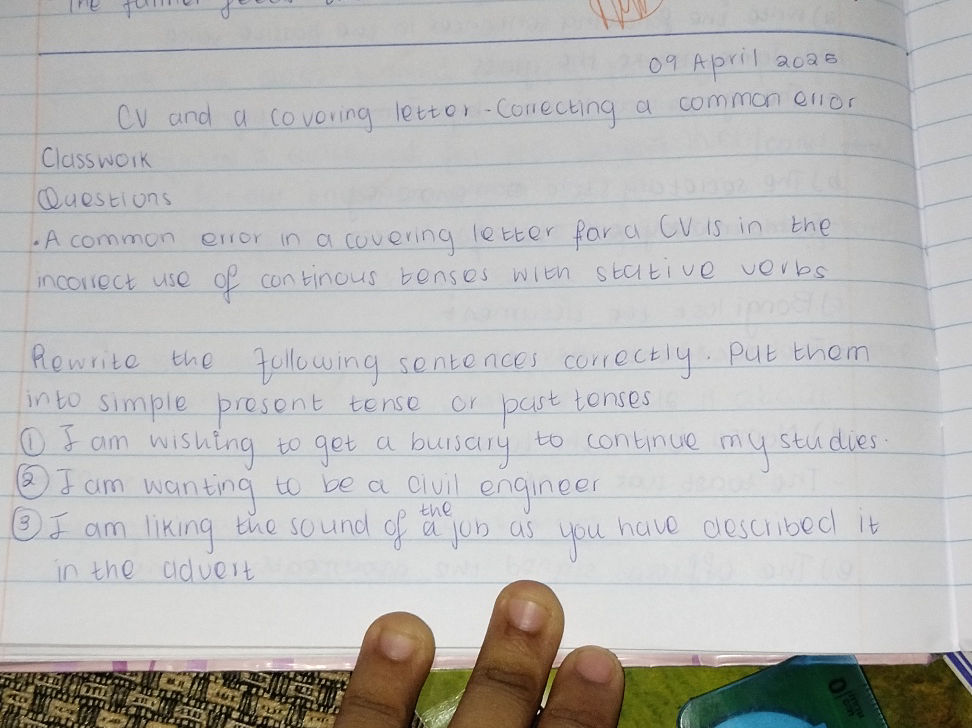 The farmer
09 April 2025
CV and a covering letter - Correcting a common error
Classwork
Questions
. A common error in a covering letter for a CV is in the
incorrect use of continous tenses with stative verbs
Rewrite the following sentences correctly. Put them
into simple present tense or past tenses
① I am wishing to get a bursary to continue my studies.
② I am wanting to be a civil engineer
the
③ I am liking the sound of a job as you have described it
in the advert